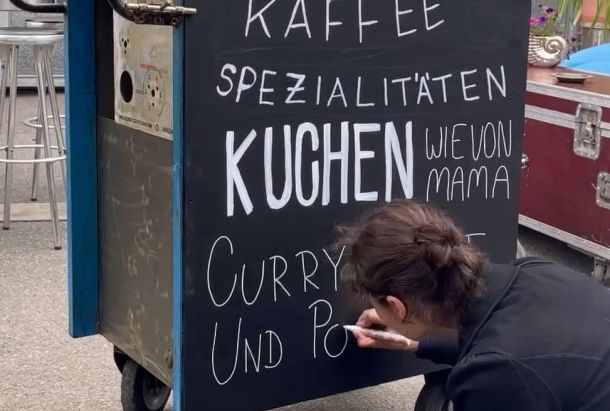 KAFFEE
SPEZIALITÄTEN
KUCHEN WIE VON
MAMA
CURRY
UND PO